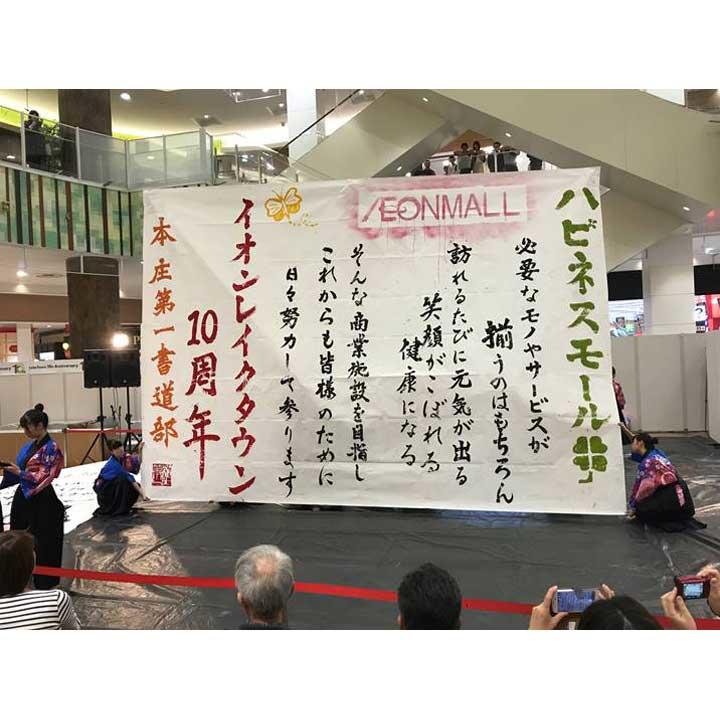 ハピネスモール
ÆONMALL
必要なモノやサービスが
揃うのはもちろん
訪れるたびに元気が出る
笑顔がこぼれる
健康になる
そんな商業施設を目指し
これからも皆様のために
日々努力して参ります
イオンレイクタウン
10周年
本庄第一書道部